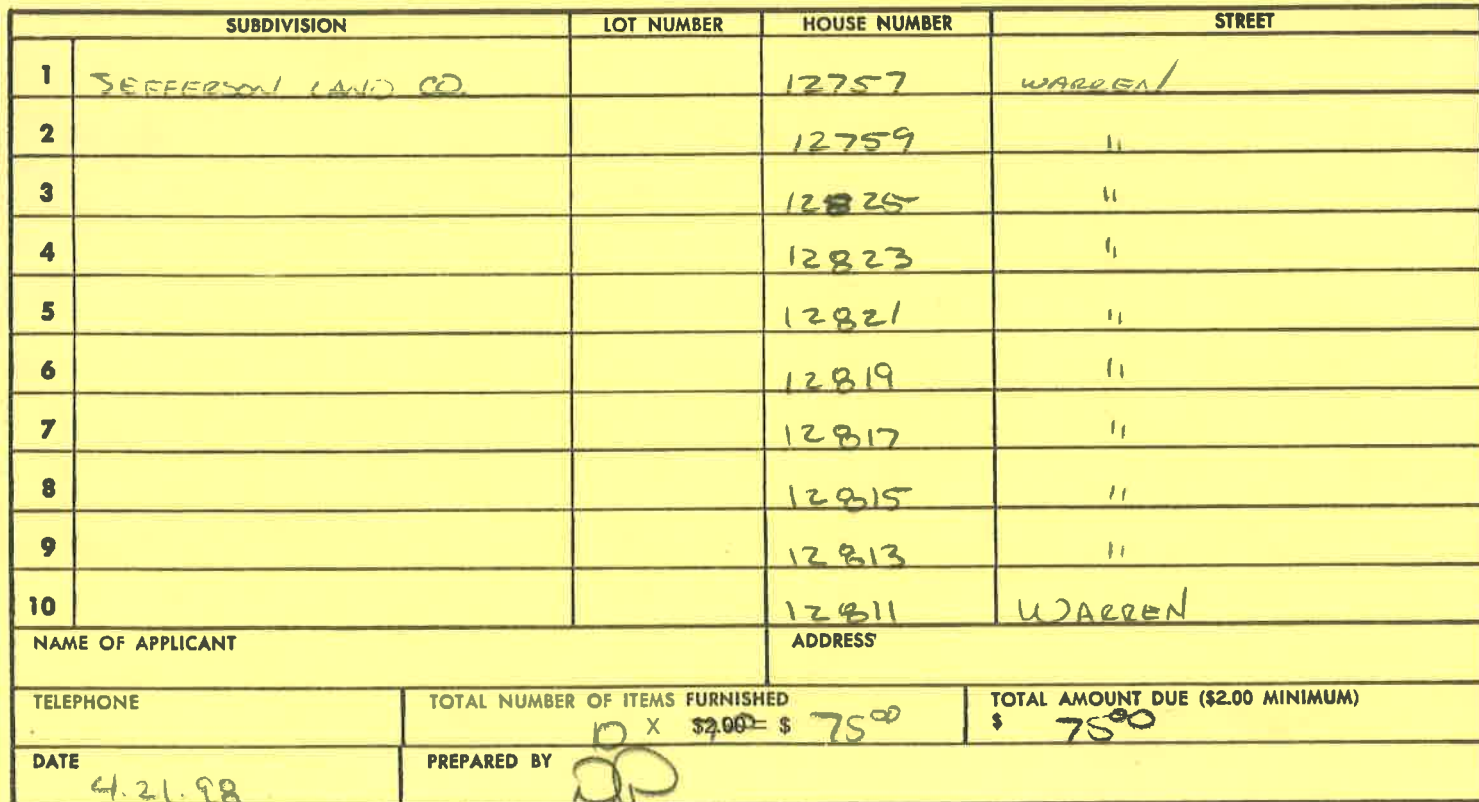 SUBDIVISION LOT NUMBER HOUSE NUMBER STREET
1 JEFFERSON LAND CO. 12757 WARREN
2 12759 "
3 12825 "
4 12823 "
5 12821 "
6 12819 "
7 12817 "
8 12815 "
9 12813 "
10 12811 WARREN
NAME OF APPLICANT ADDRESS
TELEPHONE TOTAL NUMBER OF ITEMS FURNISHED TOTAL AMOUNT DUE ($2.00 MINIMUM)
10 X $2.00 = $ 75.00 $ 75.00
DATE PREPARED BY
4.21.98